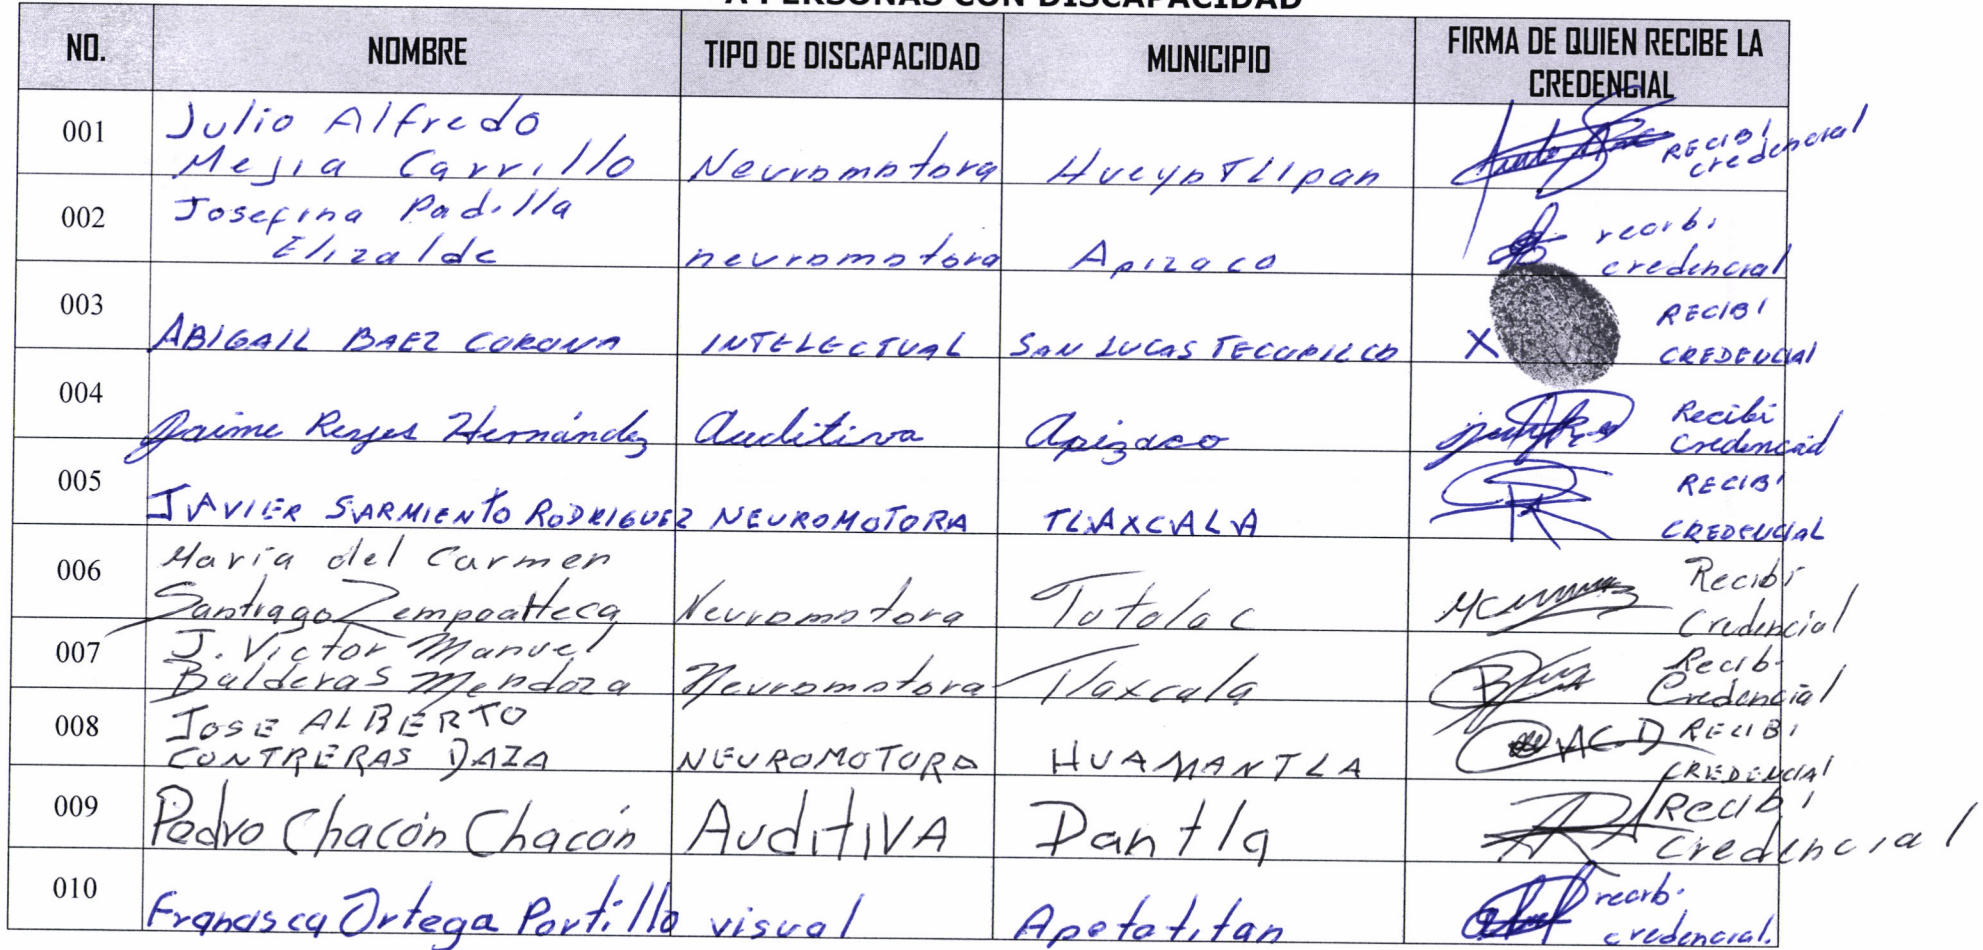 A PERSONAS CON DISCAPACIDAD
NO. NOMBRE TIPO DE DISCAPACIDAD MUNICIPIO FIRMA DE QUIEN RECIBE LA
CREDENCIAL
001 Julio Alfredo
Mejia Carrillo Neuromotora Hueyotlipan RECIBI
credencial
002 Josefina Padilla
Elizalde neuromotora Apizaco recibi
credencial
003 ABIGAIL BAEZ CORONA INTELECTUAL SAN LUCAS TECOPILCO X RECIBI
CREDENCIAL
004 Jaime Reyes Hernández Auditiva Apizaco Recibi
Credencial
005 JAVIER SARMIENTO RODRIGUEZ NEUROMOTORA TLAXCALA RECIBI
CREDENCIAL
006 María del Carmen
Santiago Zempoalteca Neuromotora Totolac Recibi
Credencial
007 J. Victor Manuel
Balderas Mendoza Neuromotora Tlaxcala Recibi
Credencial
008 JOSE ALBERTO
CONTRERAS DAZA NEUROMOTORA HUAMANTLA RECIBI
CREDENCIAL
009 Pedro Chacón Chacón AuditiVA Pantla Recibi
Credencial
010 Francisca Ortega Portillo visual Apetatitan recibi
credencial.